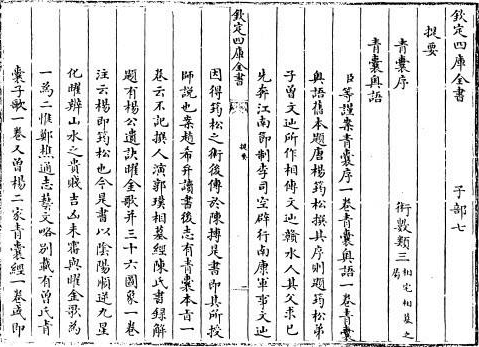 欽定四庫全書　子部七
提要　術數類三相宅相墓之屬
青囊序
青囊奥語
臣等謹案青囊序一卷青囊奥語一卷青囊
奥語舊本題唐楊筠松撰其序則題筠松弟
子曾文辿所作相傳文辿贛水人其父求已
先奔江南節制李司空辟行南康軍事文辿
欽定四庫全書　提要　二
因得筠松之術後傳於陳摶是書即其所授
師說也案趙希弁讀書後志有青囊本旨一
卷云不記撰人演郭璞相墓經陳氏書録解
題有楊公遺訣曜金歌并三十六圖象一卷
注云楊即筠松也今是書以陰陽順逆九星
化曜辨山水之貴賤吉凶未審與曜金歌為
一為二惟鄭樵通志藝文略别載有曾氏青
囊子歌一卷又曾楊二家青囊經一卷或即